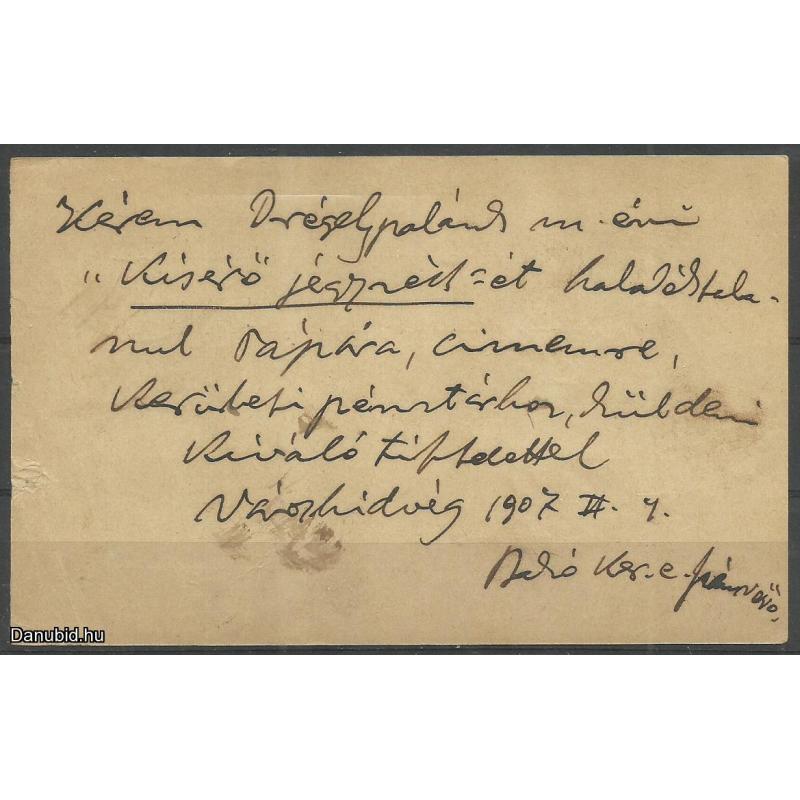 Kérem Drégelypalánk m. évi
"Kisérő jegyzék"-ét haladéktala-
nul Pápára, címemre,
Kerületi pénztárhoz, küldeni
Kiváló tisztelettel
Városhidvég 1907 II. 4.
Ker. e. pénzvevő,
Danubid.hu